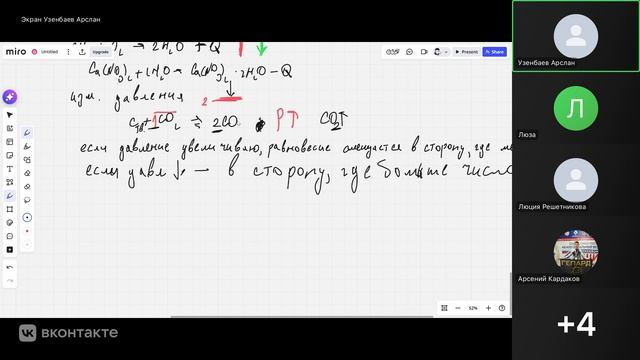 Экран Узенбаев Арслан
miro
Untitled
Upgrade
Present
Share
→ 2H₂O + Q
Ca(NO₃)₂ + 2H₂O = Ca(NO₃)₂ · 2H₂O – Q
изм. давления
2
Cтв + 1CO₂ ⇌ 2CO P↑ CO₂↑
если давление увеличиваю, равновесие смещается в сторону, где
если давл ↓ → в сторону, где больше число
52%
вконтакте
Узенбаев Арслан
Л
Люза
Люция Решетникова
ГЕПАРД
Арсений Кардаков
+4